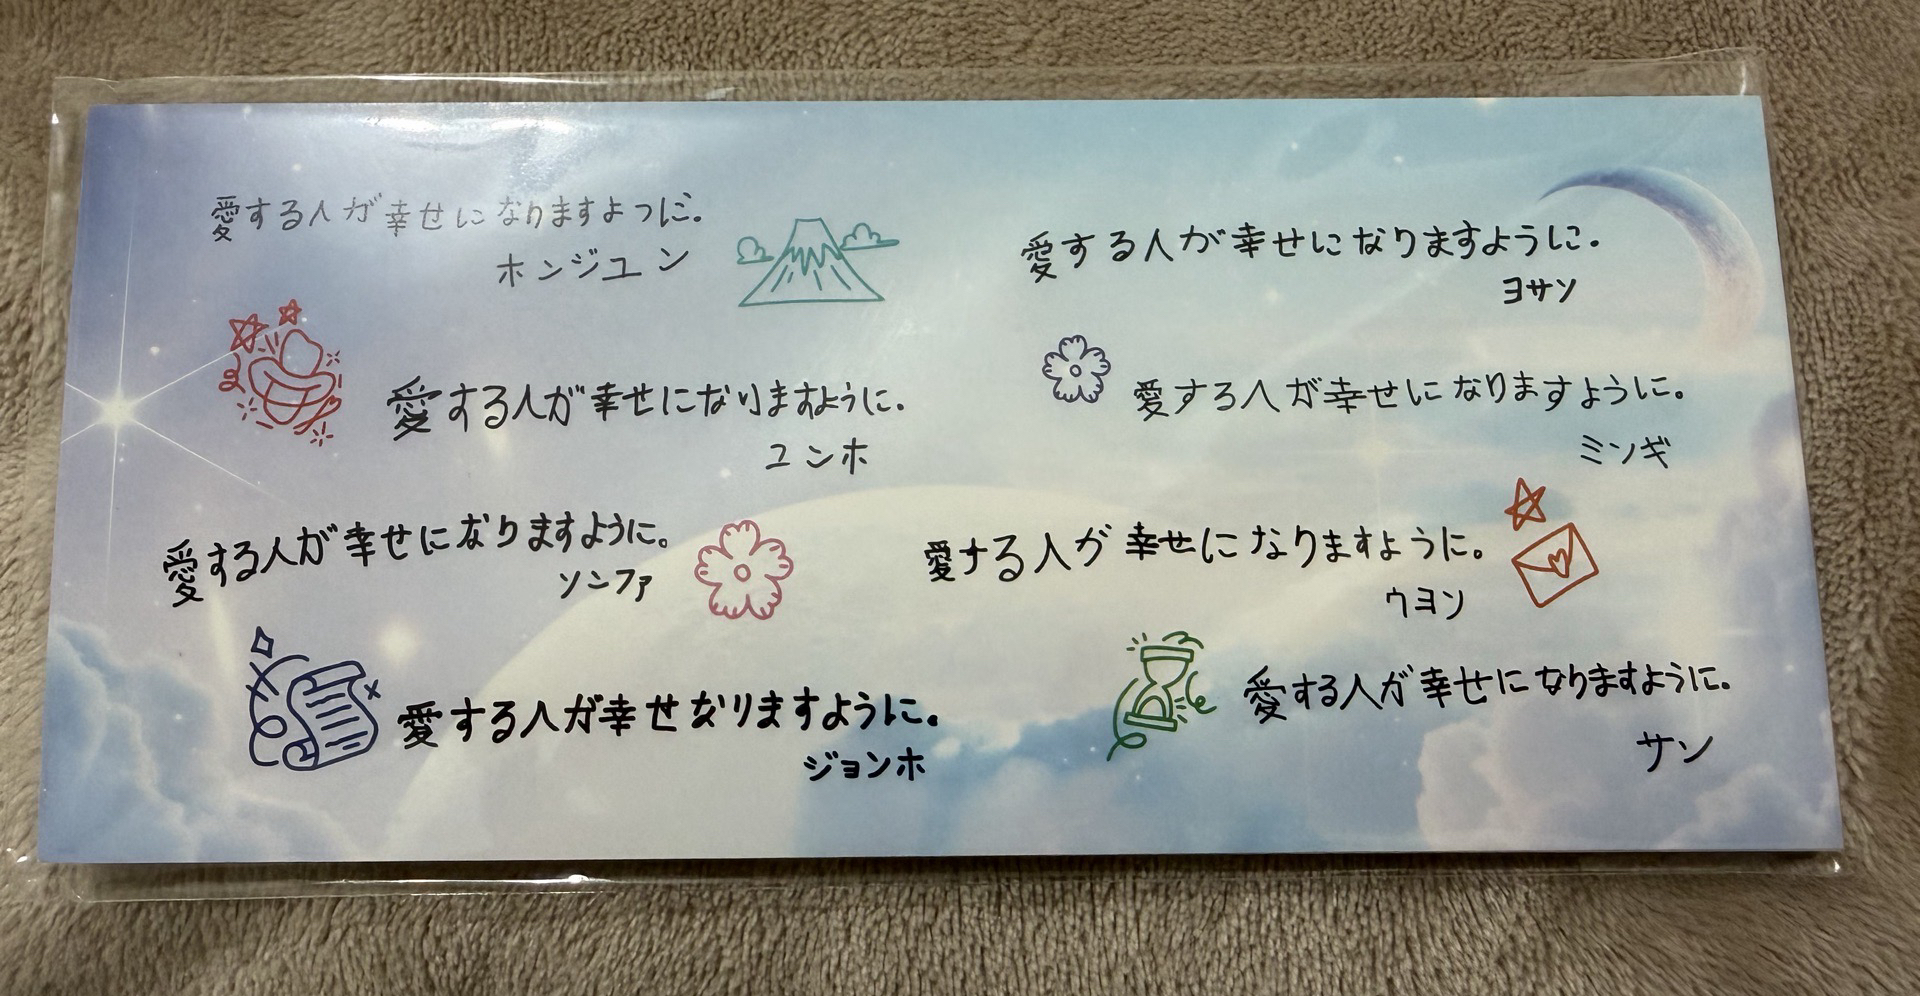 愛する人が幸せになりますように。
ホンジュン
愛する人が幸せになりますように.
ヨサン
愛する人が幸せになりますように.
ユンホ
愛する人が幸せになりますように。
ミンギ
愛する人が幸せになりますように。
ソンファ
愛する人が幸せになりますように。
ウヨン
愛する人が幸せなりますように。
ジョンホ
愛する人が幸せになりますように。
サン